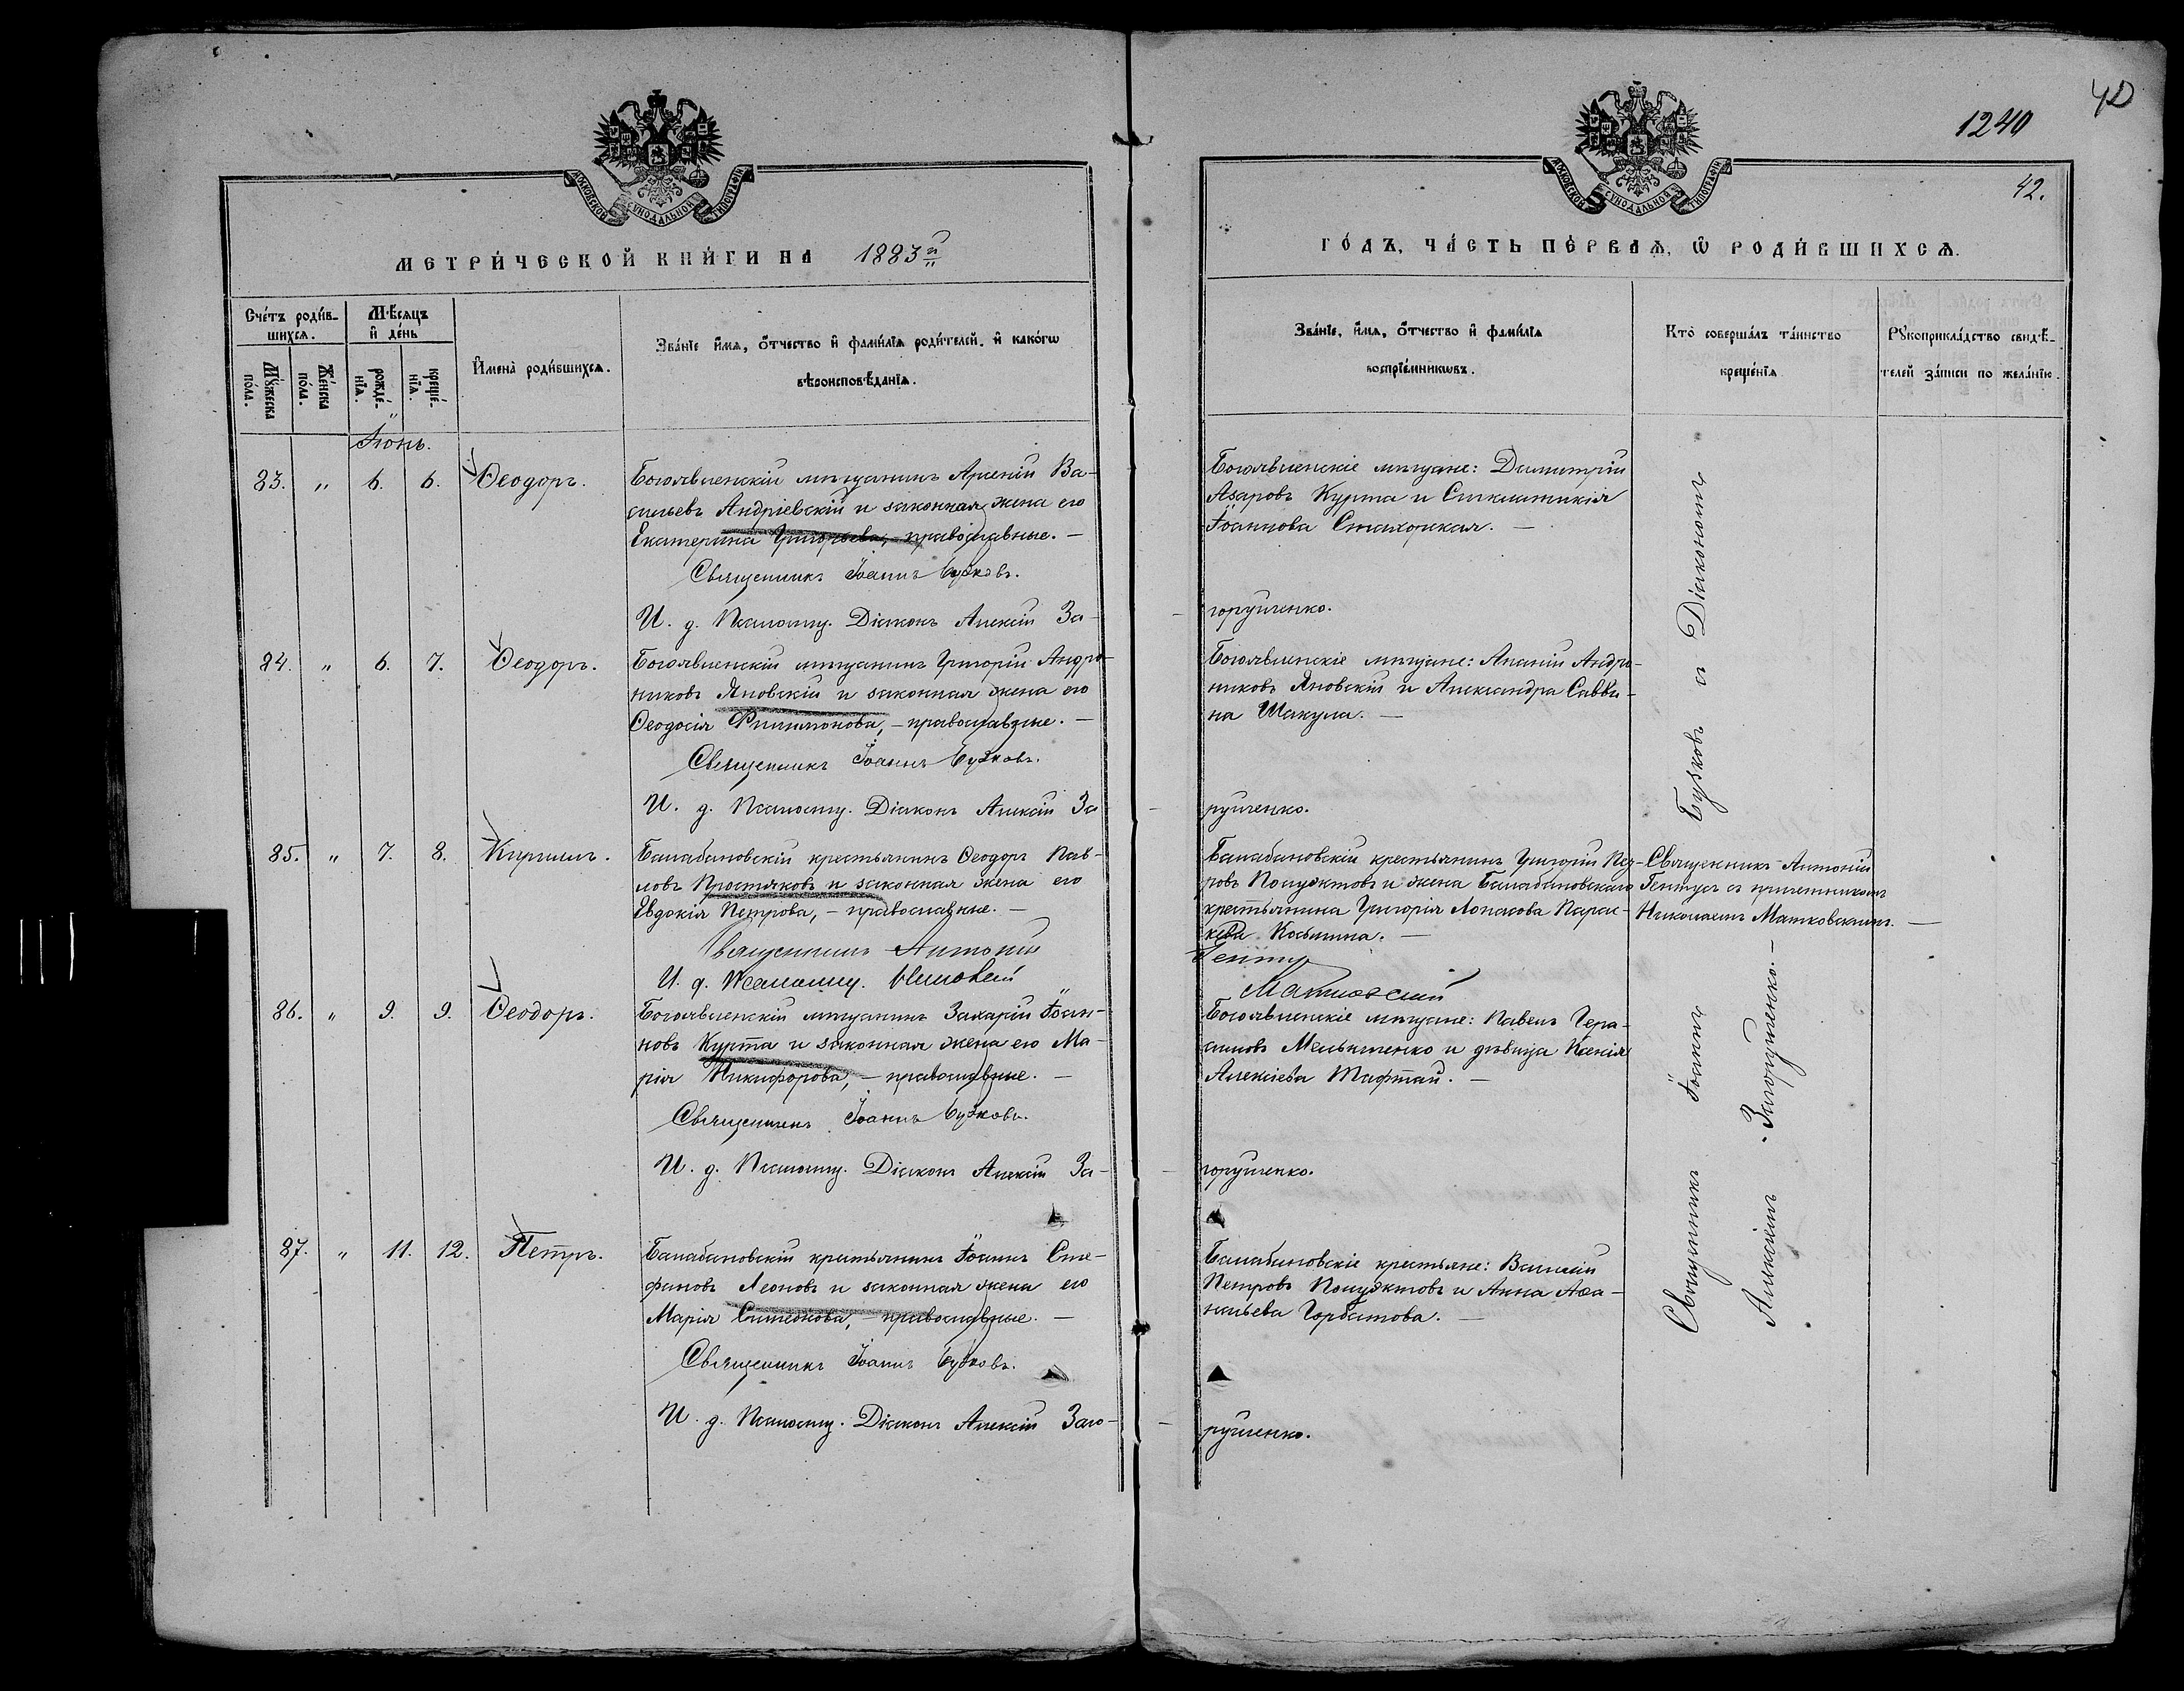 1240
40
42.
МОСКОВСКОЙ СѴНОДАЛЬНОЙ ТИПОГРАФІИ
МЕТРИ́ЧЕСКОЙ КНИ́ГИ НА 1883й
Сче́тъ роди́в-
шихсѧ.
Мѣ́сѧцъ
и҆ де́нь
Мꙋ́жеска
по́ла.
Же́нска
по́ла.
рожде́-
нїѧ.
креще́-
нїѧ.
И҆мена̀ роди́вшихсѧ.
Зва́нїе и҆́мѧ, ѻ҆́тчество и҆ фами́лїѧ роди́телей, и҆ како́гѡ
вѣроисповѣ́данїѧ.
Іюнь.
83. „ 6. 6. Ѳеодоръ.
Богоявленскій мѣщанинъ Арсеній Ва-
сильевъ Андріевскій и законная жена его
Екатерина Григорьева, - православные. -
Священникъ Іоаннъ Бужковъ.
И. д. Псаломщ. Діаконъ Алексій За-
84. „ 6. 7. Ѳеодоръ.
Богоявленскій мѣщанинъ Григорій Андро-
никовъ Яновскій и законная жена его
Ѳеодосія Филимонова, - православные. -
Священникъ Іоаннъ Бужковъ.
И. д. Псаломщ. Діаконъ Алексій За
85. „ 7. 8. Кириллъ.
Балабановскій крестьянинъ Ѳеодоръ Пав-
ловъ Простяковъ и законная жена его
Евдокія Петрова, - православные. -
Священникъ Антоній
И. д. Псаломщ. Николай
86. „ 9. 9. Ѳеодоръ.
Богоявленскій мѣщанинъ Захарій Іоан-
новъ Курта и законная жена его Ма-
рія Никифорова, - православные. -
Священникъ Іоаннъ Бужковъ.
И. д. Псаломщ. Діаконъ Алексій За-
87. „ 11. 12. Петръ.
Балабановскій крестьянинъ Іоаннъ Сте-
фановъ Леоновъ и законная жена его
Марія Симеонова, - православные. -
Священникъ Іоаннъ Бужковъ.
И. д. Псаломщ. Діаконъ Алексій Заго-
МОСКОВСКОЙ СѴНОДАЛЬНОЙ ТИПОГРАФІИ
ГО́ДЪ, ЧА́СТЬ ПЕ́РВАѦ, Ѽ РОДИ́ВШИХСѦ.
Зва́нїе, и҆́мѧ, ѻ҆́тчество и҆ фами́лїѧ
воспрїе́мникѡвъ.
Кто̀ соверша́лъ та́инство
креще́нїѧ
Рꙋкоприкла́дство свидѣ́-
телей за́писи по жела́нїю.
Богоявленскіе мѣщане: Димитрій
Азаровъ Курта и
Іоаннова
горулченко.
Богоявленскіе мѣщане: Ананій Андро-
никовъ Яновскій и Александра Савви-
на Шакула. -
рулченко.
Балабановскій крестьянинъ Григорій Пет-
ровъ Полуэктовъ и жена Балабановскаго
крестьянина Григорія Лопасова Парас-
кева Косьмина. -
Гентуъ
Матковскій
Священникъ Антоній
Гентуъ съ причетникомъ
Николаемъ Матковскимъ. -
Богоявленскіе мѣщане: Павелъ Гера-
симовъ Мельниченко и дѣвица Ксенія
Алексіева Тафтай. -
горулченко.
Балабановскіе крестьяне: Василій
Петровъ Полуэктовъ и Анна Аѳа-
насьева Горбатова. -
рулченко.
Священникъ Іоаннъ Бужковъ съ Діакономъ
Алексіемъ Загорулченко. -